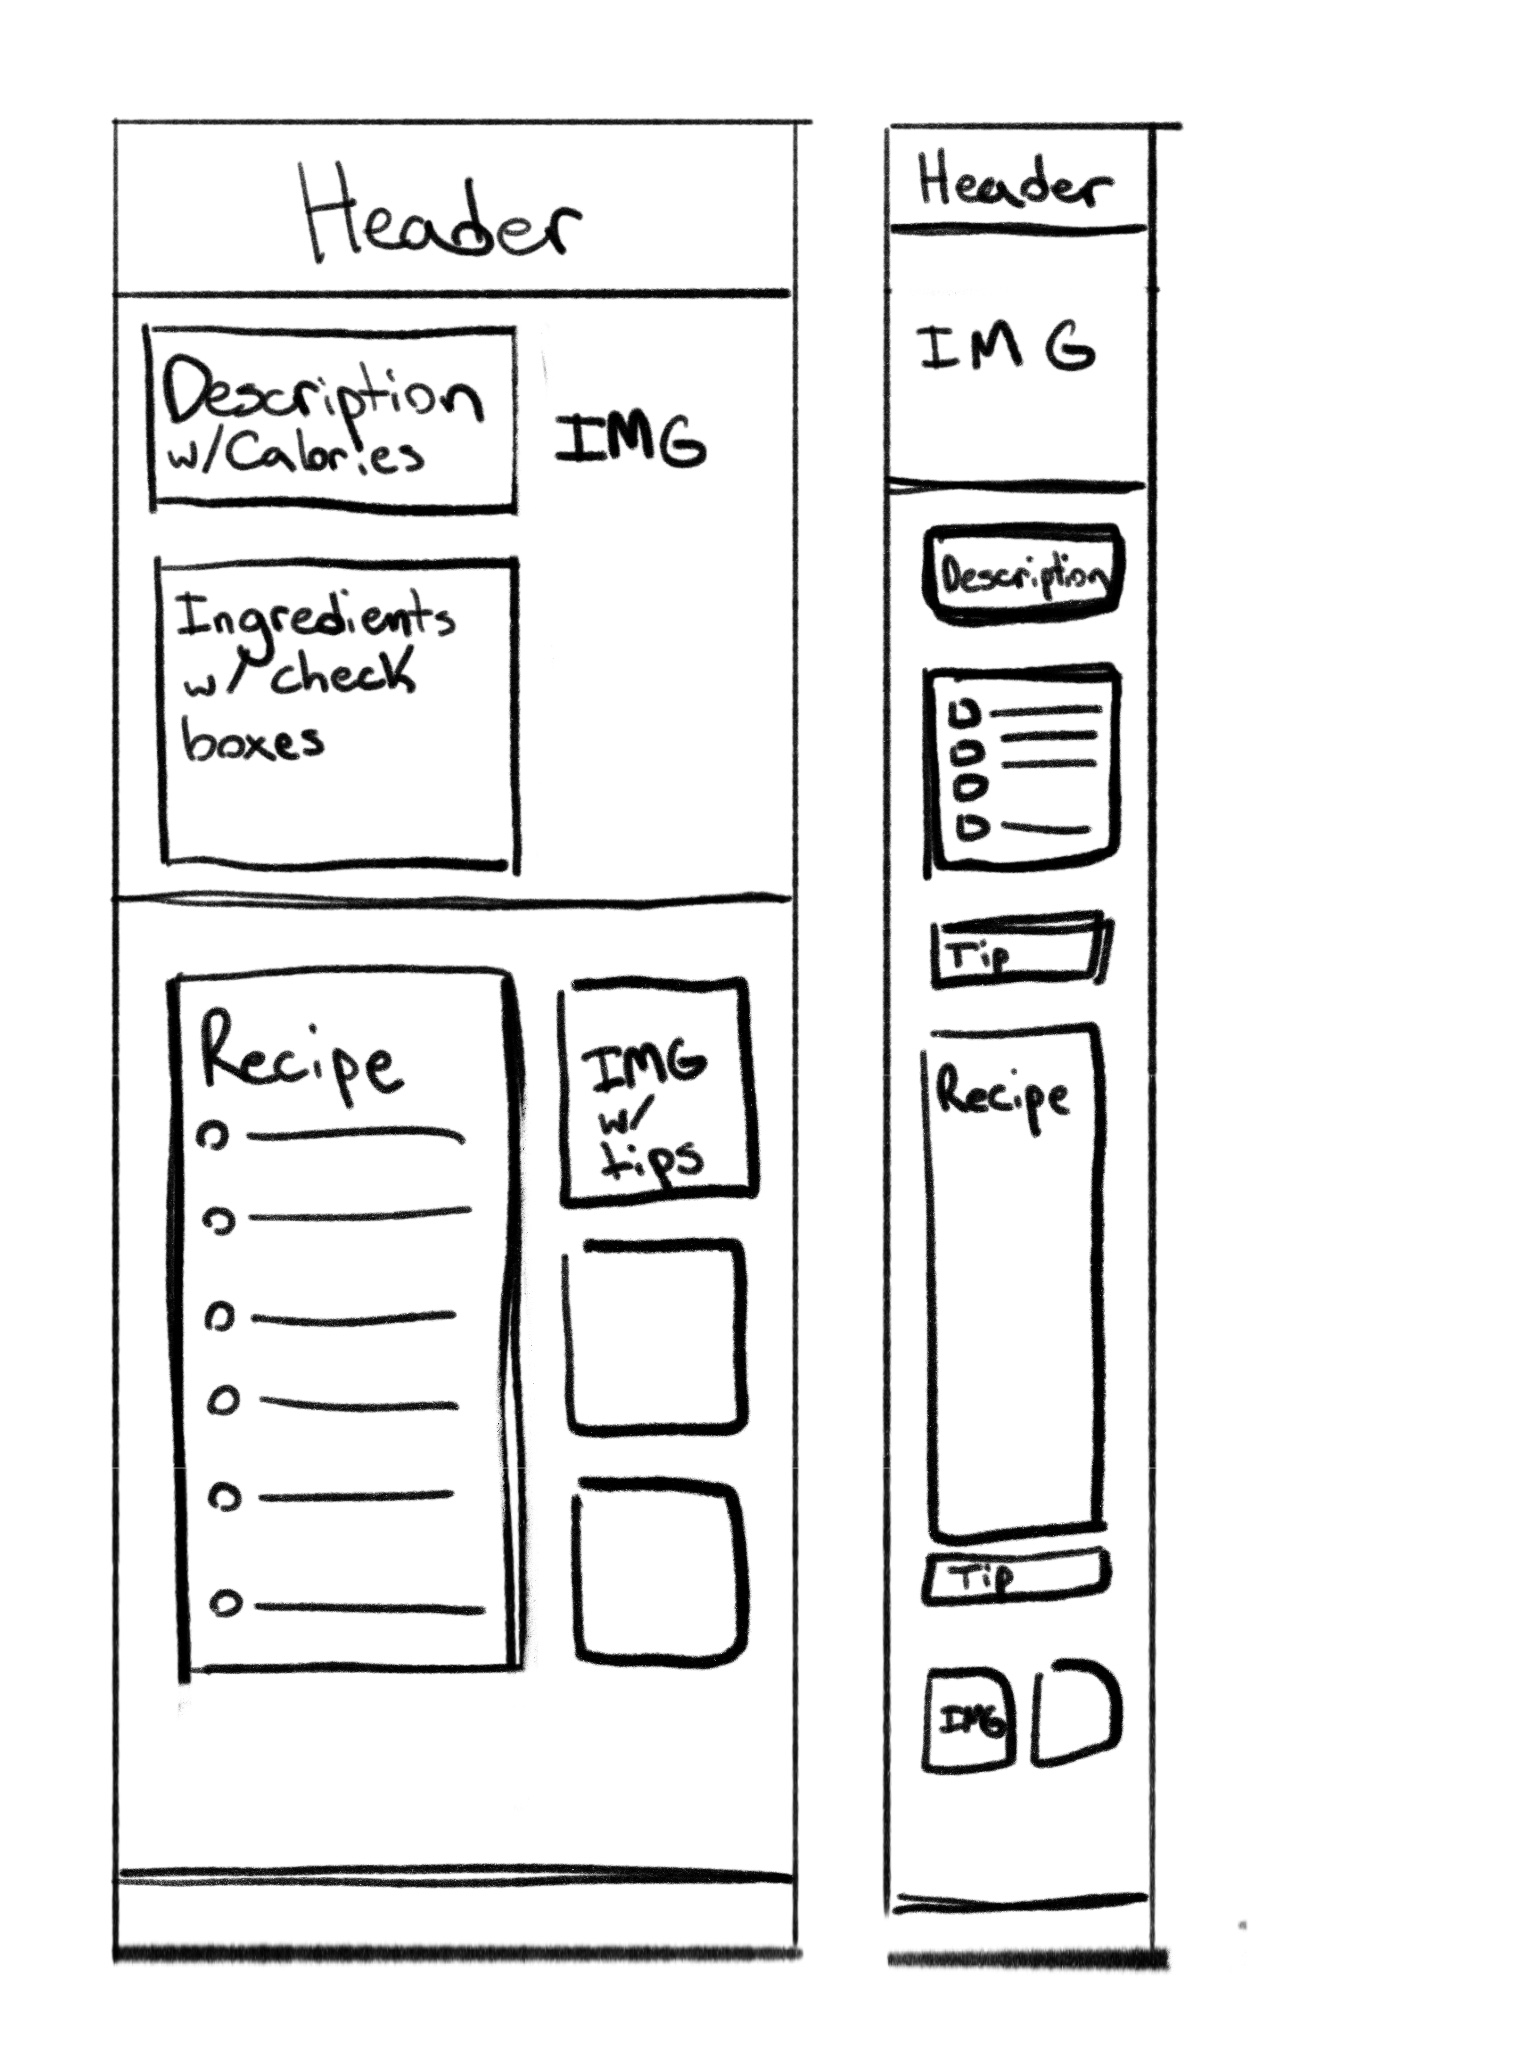 Header
Description
w/Calories
IMG
Ingredients
w/ check
boxes
Recipe
IMG
w/
tips
Header
IMG
Description
Tip
Recipe
Tip
IMG